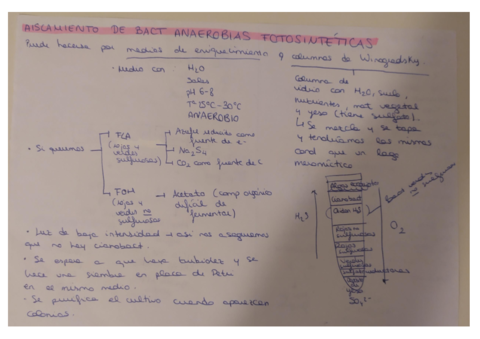 AISLAMIENTO DE BACT ANAEROBIAS FOTOSINTÉTICAS
Puede hacerse por medios de enriquecimiento y columnas de Winogradsky.
· Medio con: H2O
Sales
pH 6-8
Tª 15ºC-30ºC
ANAEROBIO
Columna de
vidrio con H2O, suelo,
nutrientes, mat vegetal
y yeso (tiene sulfato).
↳ Se mezcla y se tapa
y tendríamos las mismas
cond que un lago
meromíctico
· Si queremos
FLA
(rojas y
verdes
sulfurosas)
como
fuente de
e-
CO2 como fuente de C
FOH
(rojas y
verdes no
sulfurosas)
Acetato (comp orgánico
difícil de
fermentar)
· Luz de baja intensidad → así nos aseguramos
que no hay cianobact.
· Se espera a que haya turbidez y se
hace una siembra en placa de Petri
en el mismo medio.
· Se purifica el cultivo cuando aparezcan
colonias.
H2S
O2
Rojas no
sulfurosas
Rojas
sulfurosas
Verdes